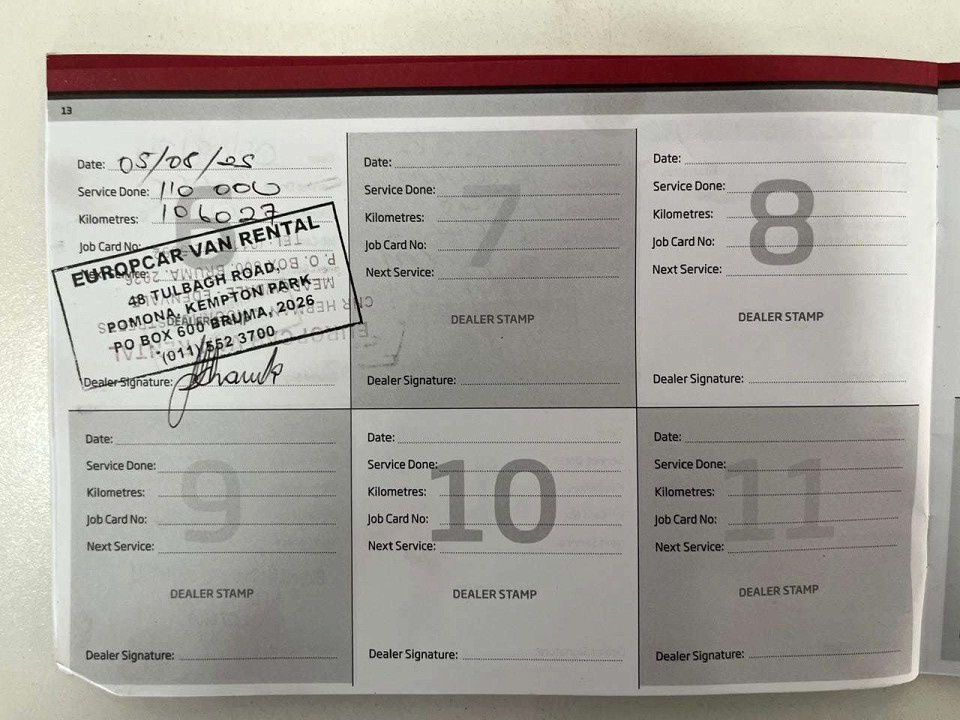 13
Date: 05/08/25
Service Done: 110 000
Kilometres: 106027
Job Card No:
EUROPCAR VAN RENTAL
48 TULBAGH ROAD,
POMONA, KEMPTON PARK
PO BOX 600 BRUMA, 2026
(011) 552 3700
Dealer Signature:
7
Date:
Service Done:
Kilometres:
Job Card No:
Next Service:
DEALER STAMP
Dealer Signature:
8
Date:
Service Done:
Kilometres:
Job Card No:
Next Service:
DEALER STAMP
Dealer Signature:
9
Date:
Service Done:
Kilometres:
Job Card No:
Next Service:
DEALER STAMP
Dealer Signature:
10
Date:
Service Done:
Kilometres:
Job Card No:
Next Service:
DEALER STAMP
Dealer Signature:
11
Date:
Service Done:
Kilometres:
Job Card No:
Next Service:
DEALER STAMP
Dealer Signature: